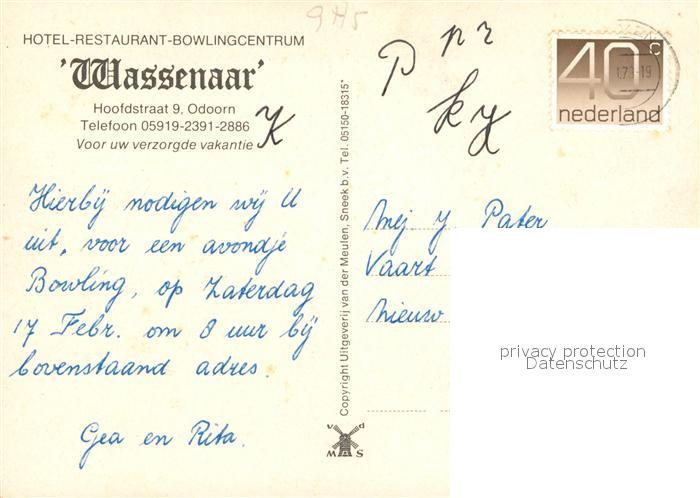 9H5
HOTEL-RESTAURANT-BOWLINGCENTRUM
'Wassenaar'
Hoofdstraat 9, Odoorn
Telefoon 05919-2391-2886
Voor uw verzorgde vakantie
Hierbij nodigen wij U
uit, voor een avondje
Bowling, op Zaterdag
17 Febr. om 8 uur bij
bovenstaand adres.
Gea en Rita.
Copyright Uitgeverij van der Meulen, Sneek b.v. Tel. 05150-18315*
v d
M S
P
40c
nederland
Mej Y Pater
Vaart
Nieuw
privacy protection
Datenschutz